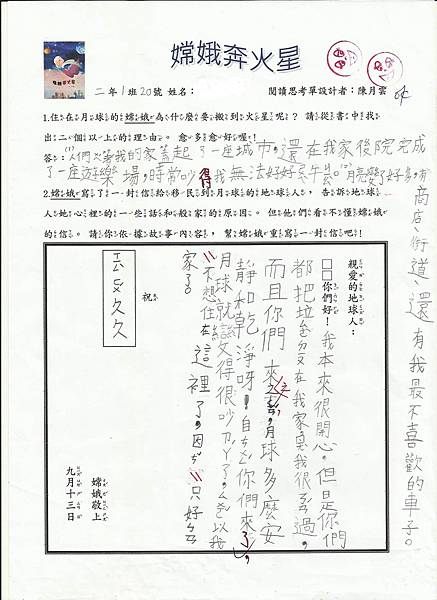 嫦娥奔火星
二年1班20號 姓名：
閱讀思考單設計者：陳月雲
1.住在月球的嫦娥為什麼要搬到火星呢？請從書中找
出二個以上的理由。愈多愈好喔！
答：(1)人們又等我的家蓋起了一座城市，還在我家後院完成
了一座遊樂場，時常吵得我無法好好ㄕㄨㄟ ㄐㄧㄠˋ。(2)月亮變了好多，有
商店、街道，還有我最不喜歡的車子。
2.嫦娥寫了一封信給移民到月球的地球人，告訴地球
人她心裡的一些話和搬家的原因。但他們看不懂嫦娥
的信。請你依據故事內容，幫嫦娥重寫一封信吧！
親愛的地球人：
□□你們好！我本來很開心。但是你們
都把垃ㄙㄜˋ
而且你們來之
，月球多麼安
靜和乾淨呀！自ㄘㄨㄥˊ你們來了，
月球就變得很吵ㄋㄠˋ了。ㄙㄨㄛˇ以我
不想住在這裡了。因ㄘˇ只好ㄅㄢ
家了。
祝
ㄩㄥˇ久久
嫦娥敬上
九月十三日